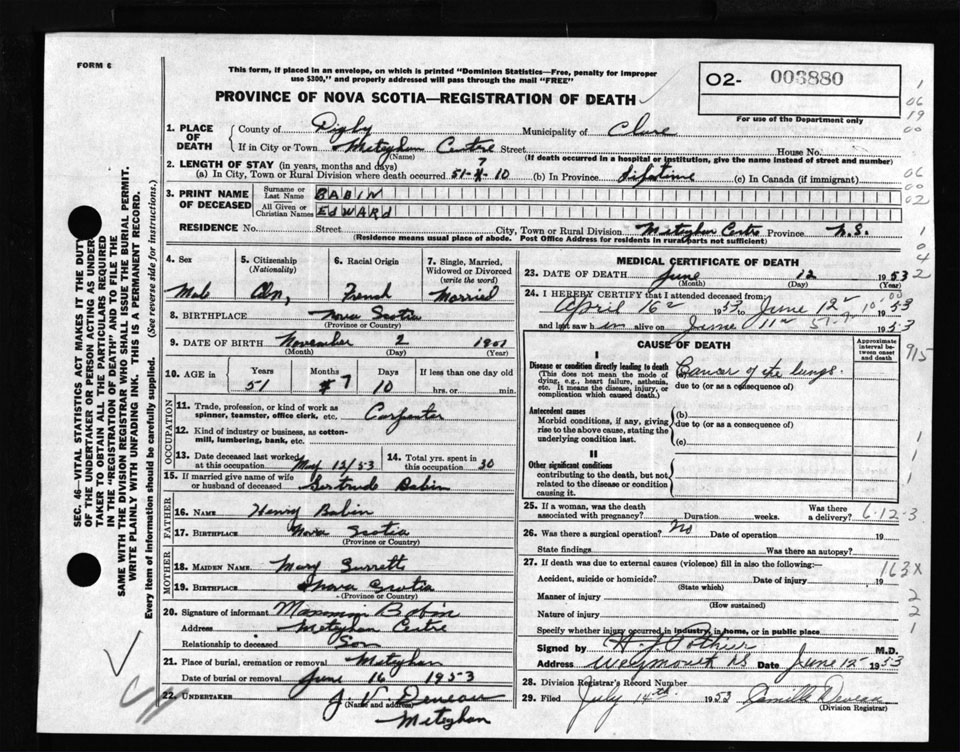 FORM 6
This form, if placed in an envelope, on which is printed "Dominion Statistics—Free, penalty for improper
use $300," and properly addressed will pass through the mail "FREE"
PROVINCE OF NOVA SCOTIA—REGISTRATION OF DEATH
O2- 003880
For use of the Department only
1. PLACE OF DEATH
County of Digby Municipality of Clare
If in City or Town Meteghan Centre Street House No.
(Name) (If death occurred in a hospital or institution, give the name instead of street and number)
2. LENGTH OF STAY (in years, months and days)
(a) In City, Town or Rural Division where death occurred 51-7-10 (b) In Province Lifetime (c) In Canada (if immigrant)
3. PRINT NAME OF DECEASED
Surname or Last Name BABIN
All Given or Christian Names EDWARD
RESIDENCE No. Street City, Town or Rural Division Meteghan Centre Province N.S.
(Residence means usual place of abode. Post Office Address for residents in rural parts not sufficient)
4. Sex
Male
5. Citizenship (Nationality)
Cdn,
6. Racial Origin
French
7. Single, Married, Widowed or Divorced (write the word)
Married
8. BIRTHPLACE Nova Scotia
(Province or Country)
9. DATE OF BIRTH November 2 1901
(Month) (Day) (Year)
10. AGE in
Years 51 Months 7 Days 10 If less than one day old
hrs. or min.
OCCUPATION
11. Trade, profession, or kind of work as spinner, teamster, office clerk, etc. Carpenter
12. Kind of industry or business, as cotton-mill, lumbering, bank, etc.
13. Date deceased last worked at this occupation May 12/53
14. Total yrs. spent in this occupation 30
15. If married give name of wife or husband of deceased Gertrude Babin
FATHER
16. NAME Henry Babin
17. BIRTHPLACE Nova Scotia
(Province or Country)
MOTHER
18. MAIDEN NAME Mary Surrette
19. BIRTHPLACE Nova Scotia
(Province or Country)
20. Signature of informant Babin
Address Meteghan Centre
Relationship to deceased Son
21. Place of burial, cremation or removal Meteghan
Date of burial or removal June 16 1953
22. UNDERTAKER J. V. Deveau
(Name and address)
Meteghan
MEDICAL CERTIFICATE OF DEATH
23. DATE OF DEATH June 12 1953
(Month) (Day)
24. I HEREBY CERTIFY that I attended deceased from:
April 16 1953 to June 12 1953
and last saw h im alive on June 11 1953
CAUSE OF DEATH
Approximate interval between onset and death
I
Disease or condition directly leading to death
(This does not mean the mode of dying, e.g., heart failure, asthenia, etc. It means the disease, injury, or complication which caused death.)
(a) Cancer of the lungs.
due to (or as a consequence of)
Antecedent causes
Morbid conditions, if any, giving rise to the above cause, stating the underlying condition last.
(b)
due to (or as a consequence of)
(c)
II
Other significant conditions
contributing to the death, but not related to the disease or condition causing it.
25. If a woman, was the death associated with pregnancy? Duration weeks. Was there a delivery? 6-12-3
26. Was there a surgical operation? No Date of operation 19
State findings Was there an autopsy?
27. If death was due to external causes (violence) fill in also the following:
Accident, suicide or homicide? Date of injury 19
(State which)
163X
Manner of injury
(How sustained)
Nature of injury
Specify whether injury occurred in industry, in home, or in public place
Signed by Pothier M.D.
Address Weymouth NS Date June 12 1953
28. Division Registrar's Record Number
29. Filed July 14th 1953 Camille Deveau
(Division Registrar)
SEC. 46—VITAL STATISTICS ACT MAKES IT THE DUTY
OF THE UNDERTAKER OR PERSON ACTING AS UNDER-
TAKER TO OBTAIN ALL THE PARTICULARS REQUIRED
IN THE "REGISTRATION OF DEATH" AND TO FILE THE
SAME WITH THE DIVISION REGISTRAR WHO SHALL ISSUE THE BURIAL PERMIT.
WRITE PLAINLY WITH UNFADING INK. THIS IS A PERMANENT RECORD.
Every item of information should be carefully supplied. (See reverse side for instructions.)
1
06
19
00
06
00
02
1
0
4
2
915
1
1
1
2
2
1